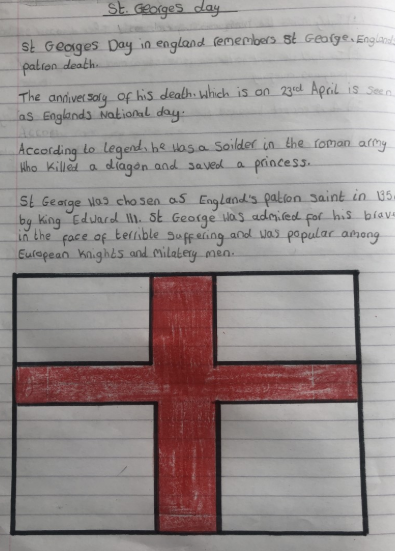 St. Georges day
St Georges Day in england remembers St George, England
patron death.
The anniversary of his death. Which is on 23rd April is seen
as Englands National day.
According to legend, he was a Soilder in the roman army
Who killed a dragon and saved a princess.
St George was chosen as England's patron saint in 135
by King Edward III. St George was admired for his brave
in the face of terrible suffering and was popular among
European Knights and milatery men.